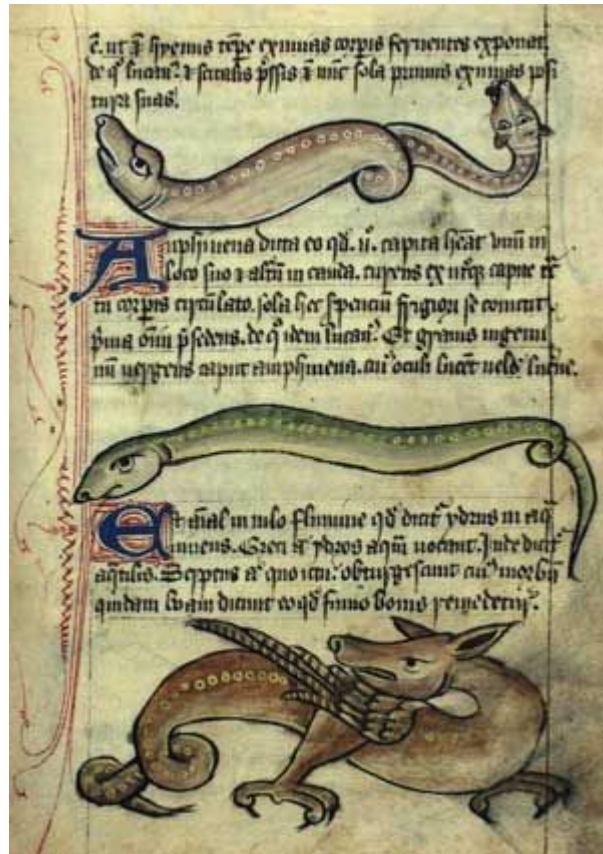 ē. ut ī hyemis tēpe exuuias corpis feruentes exponat.
de q̄ lucan⁹. ⁊ scitalis ī nūc sola pruinis exuuias posi
tura suas.
Amphiuena dicta eo qd̄. ii. capita heāt unū in
loco suo ⁊ altū in cauda. currens ex capite
tu corpis circulato. sola hec spenciū frigori se comitit
oīm p̄sedens. de q̄ idem lucan⁹. Et grauis in gemi
nū uergens caput amphiuena. cui⁹ oculi lucēt uelud lucerne.
Est aīal in nilo flumine qd̄ dicit̄ ydrus in aq̄
uiuens. Greci ydros aquā uocant. Inde dicit̄
aq̄tilis. Serpens a quo ictu obturgescunt cui⁹ morbū
quidam boam dicunt eo qd̄ fimo bouis remedetur.